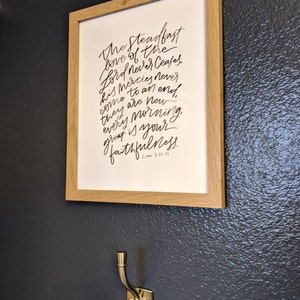 the steadfast
love of the
Lord never ceases,
his mercies never
come to an end,
they are new
every morning.
great is your
faithfulness.
Lam. 3:22-23